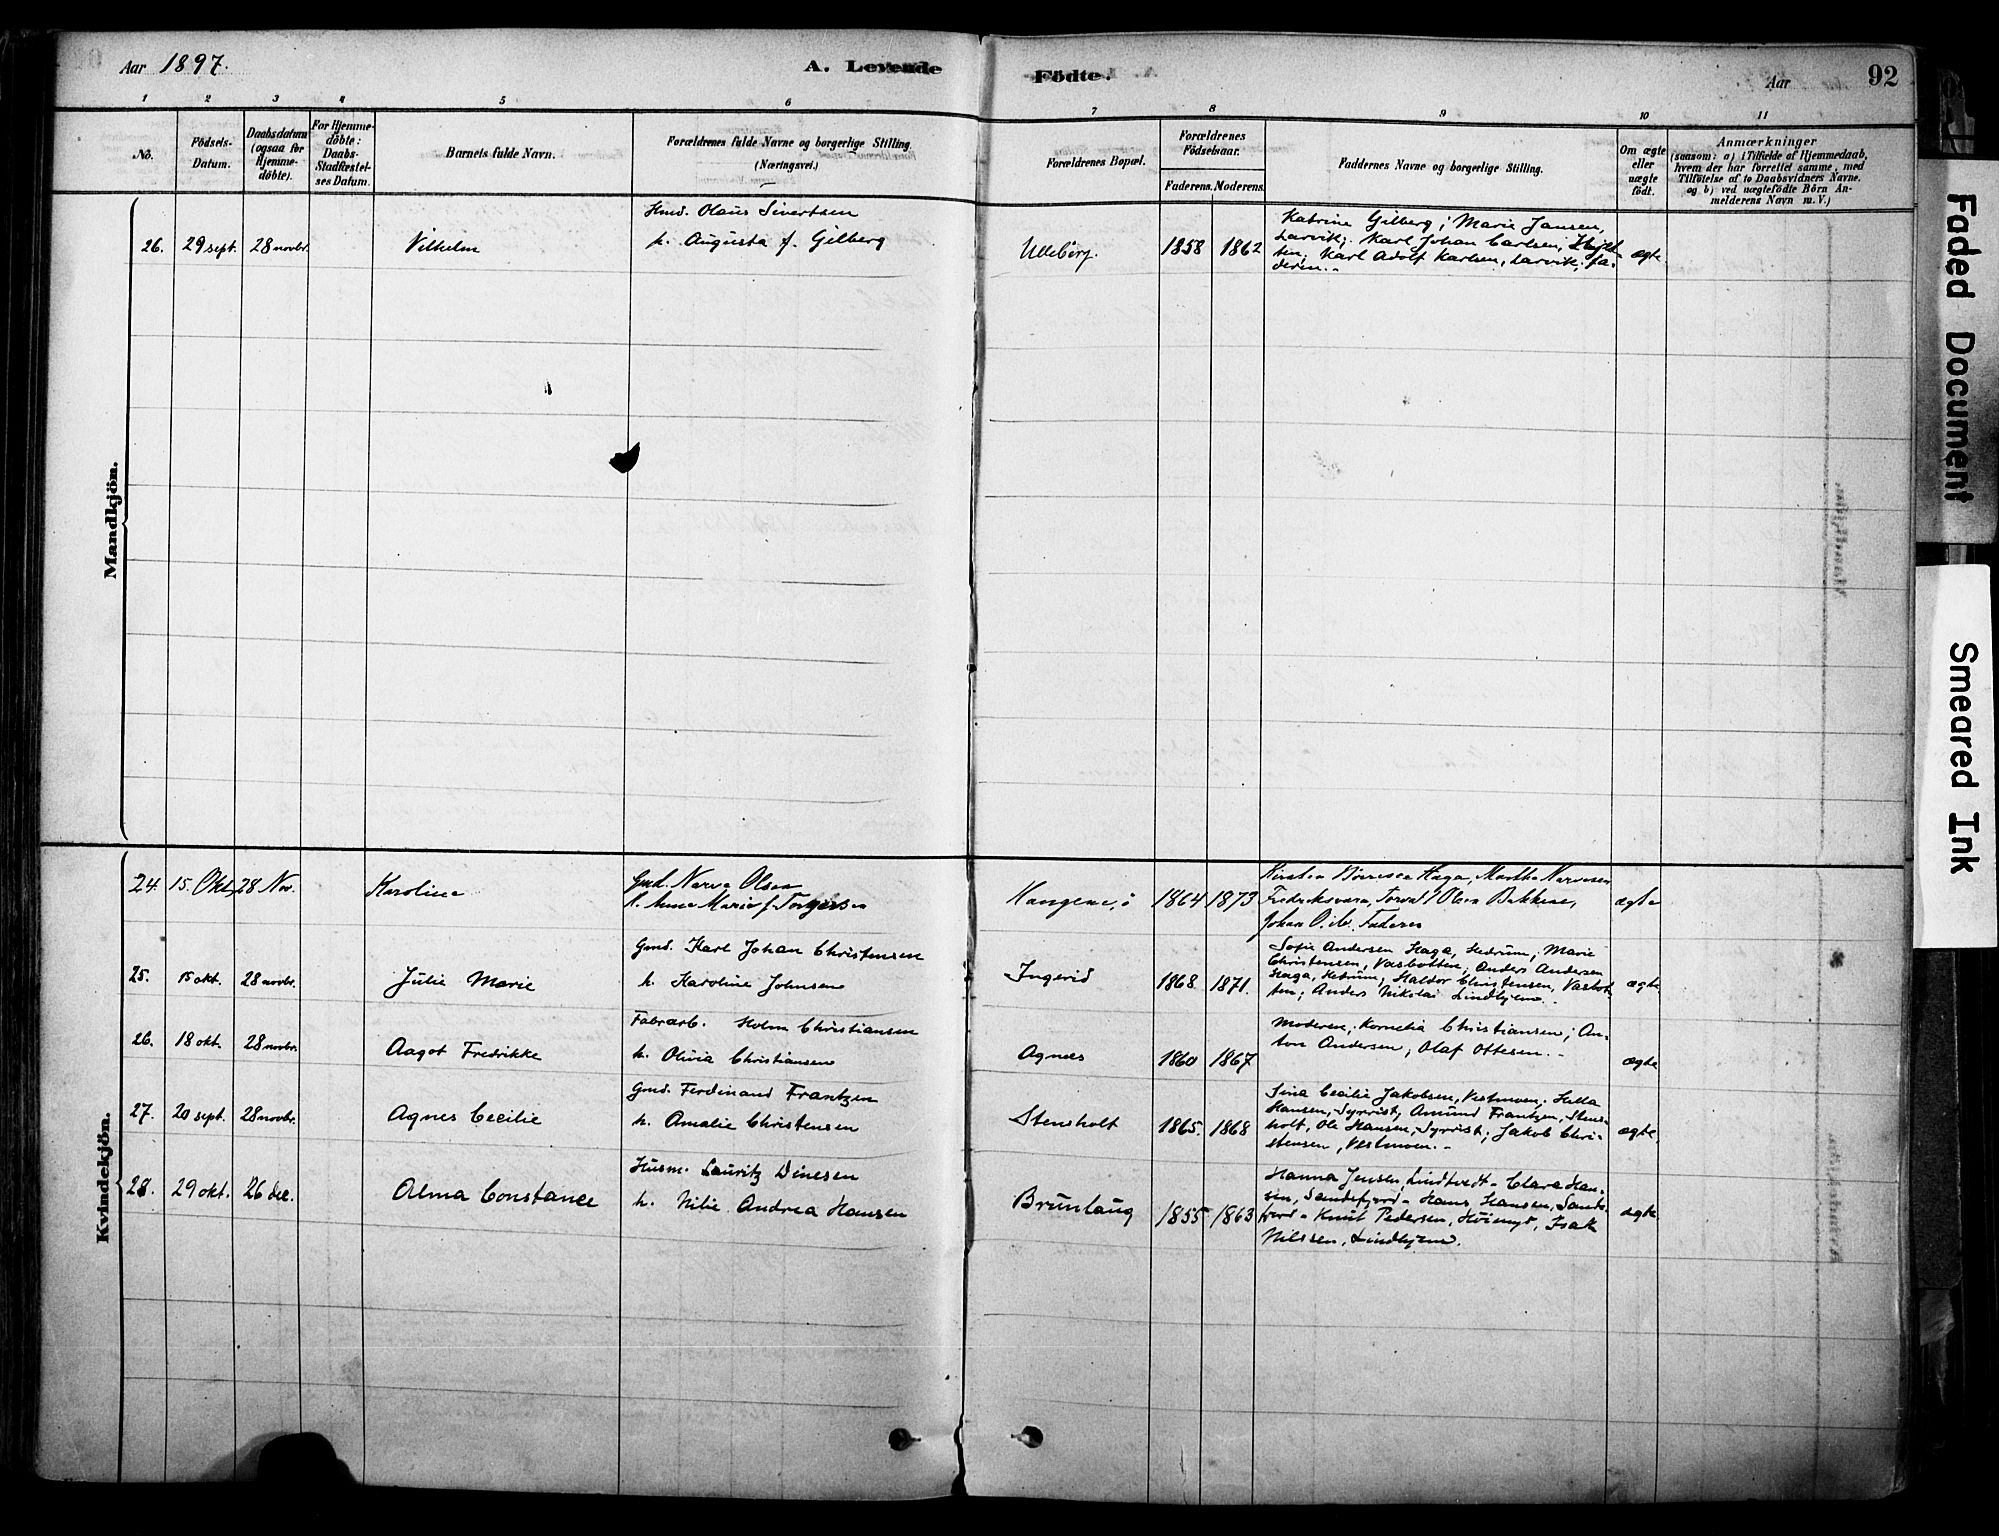 Aar 1897.
A. Levende
Födte.
Aar
92
1 2 3 4 5 6 7 8 9 10 11
No.
Födsels-
Datum.
Daabsdatum
(ogsaa for
Hjemme-
döbte).
For Hjemme-
döbte:
Daabs-
Stadfæstel-
ses Datum.
Barnets fulde Navn.
Forældrenes fulde Navne og borgerlige Stilling.
(Næringsvei.)
Forældrenes Bopæl.
Forældrenes
Födselsaar.
Faderens. Moderens.
Faddernes Navne og borgerlige Stilling.
Om ægte
eller
uægte
födt.
Anmærkninger
(saasom: a) i Tilfælde af Hjemmedaab,
hvem der har forrettet samme, med
Tilföielse af to Daabsvidners Navne.
og b) ved uægtefödte Börn An-
melderens Navn m. V.)
Mandkjön.
26. 29 sept. 28 novbr. Vilhelm
Hmd. Olaus Sivertsen
h. Augusta f. Gilberg
Ulleberg. 1858 1862
Katrine Gilberg; Marie Jansen,
Larvik; Karl Johan Carlsen,
Karl Adolf Karlsen, Larvik; fa-
deren.-
ægte
Kvindekjön.
24. 15. Okt. 28 Nov. Karoline
Gmd. Narve Olsen
h. Anne Marie f. Torgersen
1864 1873
Kirsten Börresen Haga, Marthe Narvesen
Fredriksværn, Torvald Olsen Bakkene,
Johan Faderen
ægte
25. 15 okt. 28 novbr. Julie Marie
Gmd. Karl Johan Christensen
h. Karoline Johnsen
Ingerid 1868. 1871.
Sofie Andersen Haga, Hedrum; Marie
Christensen, Vasbotten; Anders Andersen
Haga, Hedrum; Haldor Christensen, Vasbot-
ten; Anders Nikolai Lindhjem.-
ægte
26. 18 okt. 28 novbr. Aagot Fredrikke
Fabrarb. Holm Christiansen
h. Olivia Christiansen
Agnæs 1860 1867
Moderen; Kornelia Christiansen; An-
ton Andersen; Olaf Ottesen.-
ægte
27. 20 sept. 28 novbr. Agnes Cecilie
Gmd. Ferdinand Frantzen
h. Amalie Christensen
Stensholt 1865. 1868
Sina Cecilie Jakobsen, Vestmoen; Hella
Hansen, Syrrist; Amund Frantzen, Stens-
holt, Ole Hansen, Syrrist; Jakob Chri-
stensen, Vestmoen.-
ægte,
28. 29 okt. 26 dec. Alma Constance
Husm. Lauritz Dinesen
h. Nilie Andrea Hansen
Brunlaug 1855 1863
Hanna Jensen, Lindtvedt - Clara Han-
sen, Sandefjord - Hans Hansen, Sande-
fjord - Knut Pedersen, Höimyr, Isak
Nilssen, Lindhjem.
ægte
Faded Document
Smeared Ink